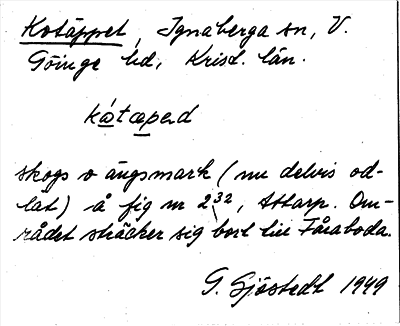 Kotäppet, Ignaberga sn, V.
Göinge hd, Krist. län.
kòtæpəd
skogs o ängsmark (nu delvis od-
lat) å fig nr 2³², Attarp. Om-
rådet sträcker sig bort till Fåraboda.
G. Sjöstedt 1949